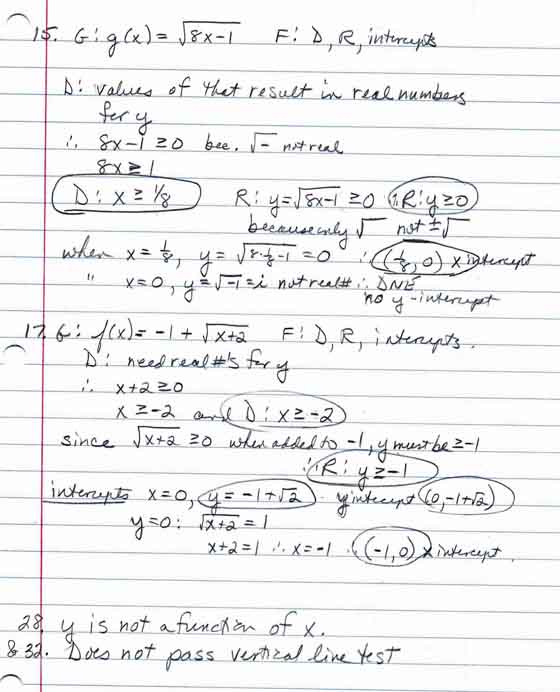 15. G: g(x) = √8x-1 F: D, R, intercepts
D: values of that result in real numbers
for y
∴ 8x-1 ≥ 0 bec. √- not real
8x ≥ 1
D: x ≥ 1/8 R: y = √8x-1 ≥ 0 ∴ R: y ≥ 0
because only √ not ±√
when x = 1/8, y = √8·1/8-1 = 0 ∴ (1/8, 0) x intercept
" x = 0, y = √-1 = i not real # ∴ DNE
no y-intercept
17. G: f(x) = -1 + √x+2 F: D, R, intercepts.
D: need real #'s for y
∴ x+2 ≥ 0
x ≥ -2 and D: x ≥ -2
since √x+2 ≥ 0 when added to -1, y must be ≥ -1
∴ R: y ≥ -1
intercepts x = 0, y = -1+√2 · y intercept (0, -1+√2)
y = 0: √x+2 = 1
x+2 = 1 ∴ x = -1 ∴ (-1, 0) x intercept.
28. y is not a function of x.
& 32. Does not pass vertical line test